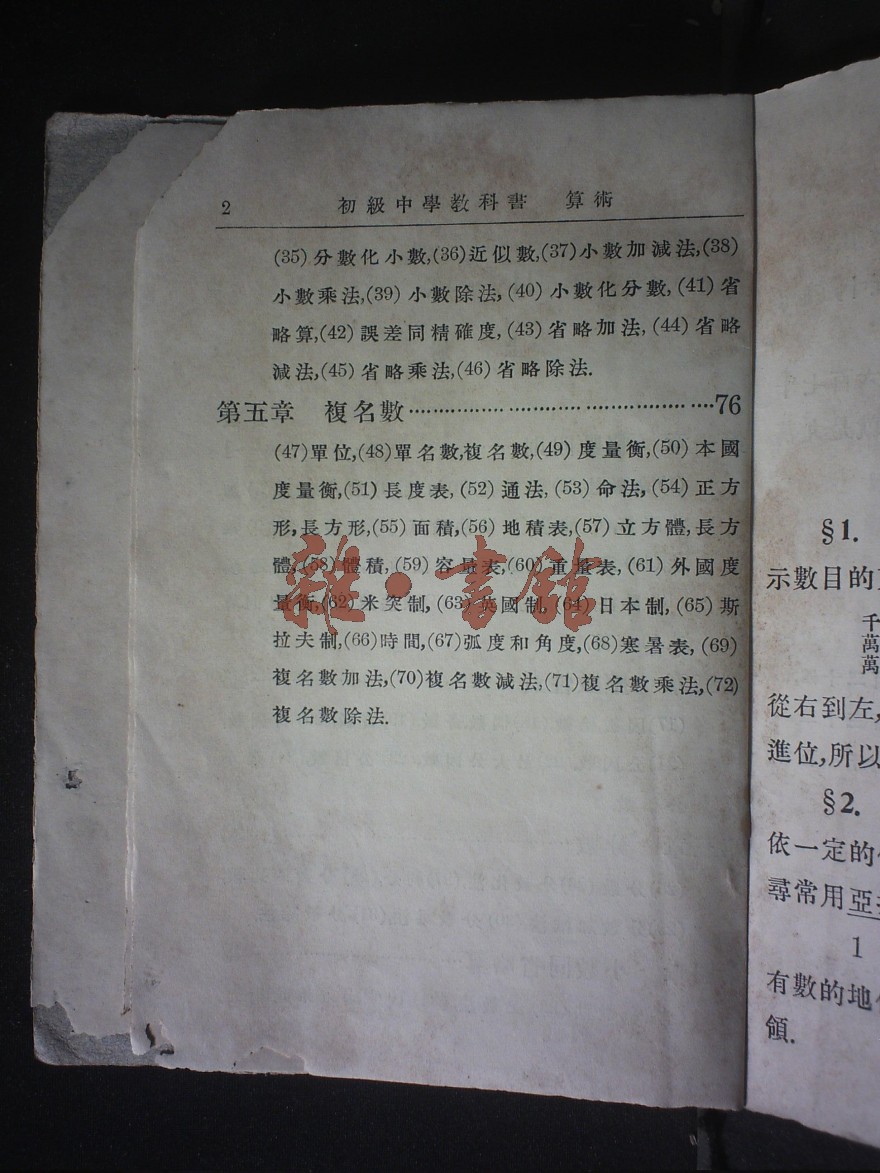 2 初級中學教科書 算術
(35)分數化小數,(36)近似數,(37)小數加減法,(38)
小數乘法,(39)小數除法,(40)小數化分數,(41)省
略算,(42)誤差同精確度,(43)省略加法,(44)省略
減法,(45)省略乘法,(46)省略除法.
第五章 複名數………………………………76
(47)單位,(48)單名數,複名數,(49)度量衡,(50)本國
度量衡,(51)長度表,(52)通法,(53)命法,(54)正方
形,長方形,(55)面積,(56)地積表,(57)立方體,長方
體,(58)體積,(59)容量表,(60)重量表,(61)外國度
量衡,(62)米突制,(63)英國制,(64)日本制,(65)斯
拉夫制,(66)時間,(67)弧度和角度,(68)寒暑表,(69)
複名數加法,(70)複名數減法,(71)複名數乘法,(72)
複名數除法.
雜·書館
§1.
示數目的
千萬萬
從右到左,
進位,所以
§2.
依一定的
尋常用亞
1
有數的地
領.